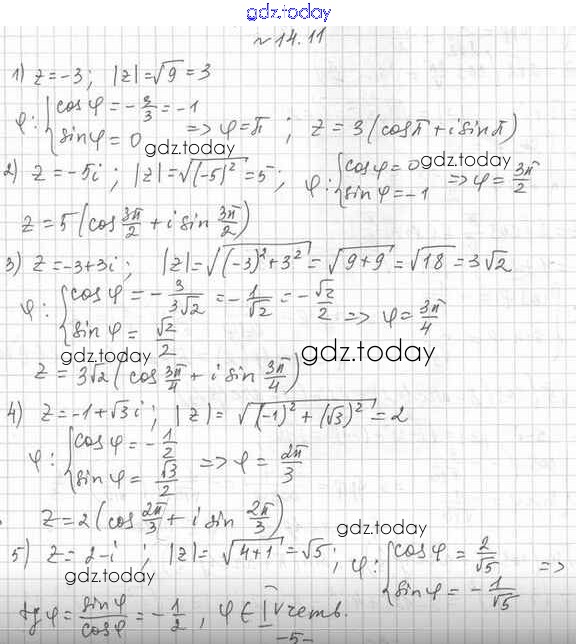 gdz.today
№ 14.11
1) z = -3; |z| = √9 = 3
φ: { cos φ = -3/3 = -1
sin φ = 0 => φ = π; z = 3(cos π + i sin π)
gdz.today
gdz.today
2) z = -5i; |z| = √(-5)² = 5; φ: { cos φ = 0
sin φ = -1 => φ = 3π/2
z = 5(cos 3π/2 + i sin 3π/2)
3) z = -3+3i; |z| = √((-3)²+3²) = √(9+9) = √18 = 3√2
φ: { cos φ = -3/(3√2) = -1/√2 = -√2/2
sin φ = √2/2 => φ = 3π/4
gdz.today
gdz.today
z = 3√2(cos 3π/4 + i sin 3π/4)
4) z = -1+√3i; |z| = √((-1)²+(√3)²) = 2
φ: { cos φ = -1/2
sin φ = √3/2 => φ = 2π/3
z = 2(cos 2π/3 + i sin 2π/3)
gdz.today
5) z = 2-i; |z| = √(4+1) = √5; φ: { cos φ = 2/√5
sin φ = -1/√5 =>
gdz.today
tg φ = sin φ/cos φ = -1/2, φ ∈ IV четв.
-5-